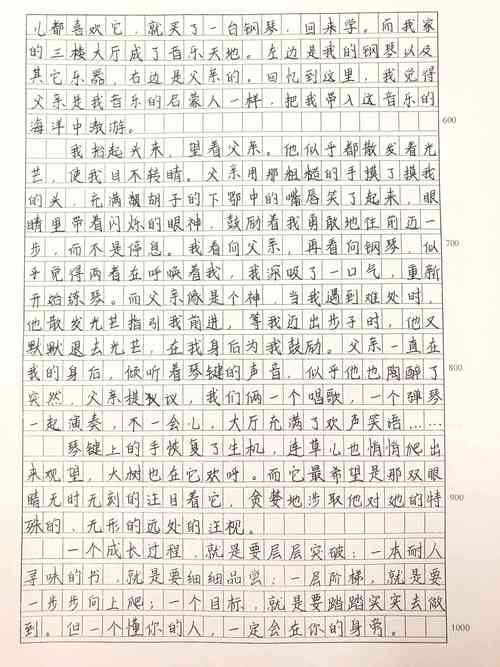 儿都喜欢它，就买了一台钢琴，回来学。而我家
的三楼大厅成了音乐天地。左边是我的钢琴以及
其它乐器，右边是父亲的。回忆到这里，我觉得
父亲是我音乐的启蒙人一样，把我带入这音乐的
海洋中敖游。
600
我抬起头来，望着父亲。他似乎都散发着光
芒，使我目不转睛。父亲用那粗糙的手摸了摸我
的头，充满胡胡子的下鄂中的嘴唇笑了起来，眼
睛里带着闪烁的眼神，鼓励着我勇敢地往前迈一
步，而不是停息。我看向父亲，再看向钢琴，似
700
乎觉得两者在呼唤着我，我深吸了一口气，重新
开始练琴。而父亲像是个神，当我遇到难处时，
他散发光芒指引我前进，等我迈出步子时，他又
默默退去光芒，在我身后为我鼓励。父亲一直在
我的身后，倾听着琴键的声音，似乎他也陶醉了
800
突然，父亲提议，我们俩一个唱歌，一个弹琴
一起演奏，不一会儿，大厅充满了欢声笑语……
琴键上的手恢复了生机，连草儿也悄悄爬出
来观望，大树也在它欢呼。而它最希望是那双眼
睛无时无刻的注目看它，贪婪地涉取他对她的特
900
殊的、无形的远处的注视。
一个成长过程，就是要层层突破；一本耐人
寻味的书，就是要细细品尝；一层阶梯，就是要
一步步向上爬；一个目标，就是要踏踏实实去做
到。但一个懂你的人，一定会在你的身旁。
1000